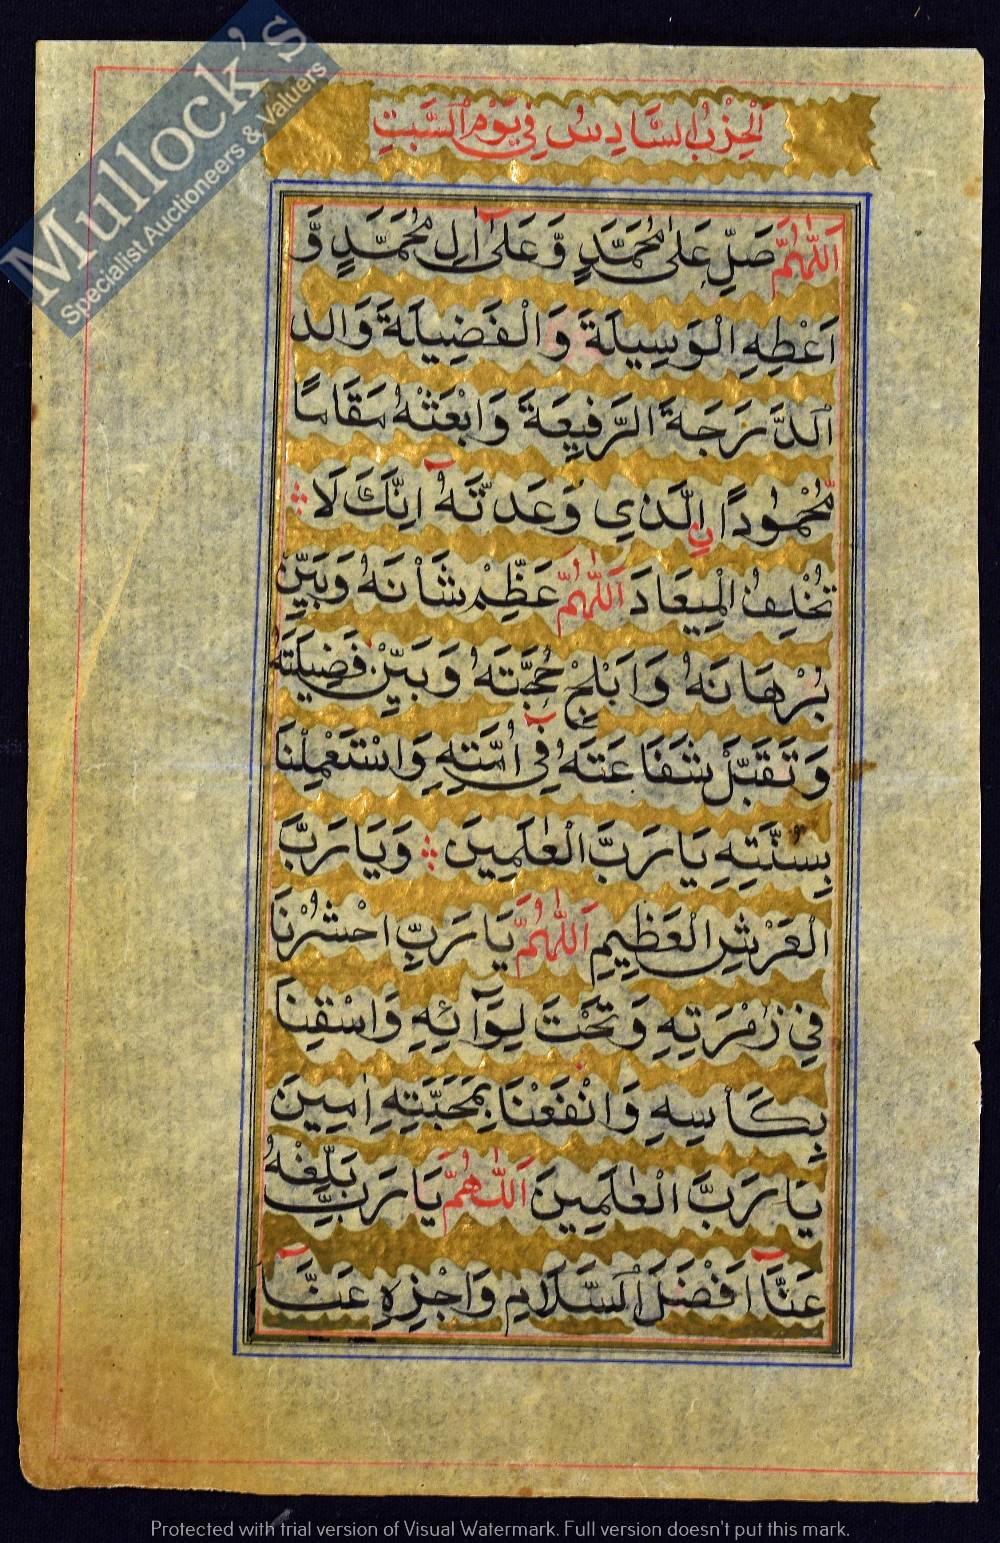 Mullock's
Specialist Auctioneers & Valuers
اَلْحِزْبُ السَّادِسُ فِي يَوْمِ السَّبْتِ
اَللّٰهُمَّ صَلِّ عَلٰى مُحَمَّدٍ وَّ عَلٰٓى اٰلِ مُحَمَّدٍ وَّ
اَعْطِهِ الْوَسِيلَةَ وَالْفَضِيلَةَ وَالد
الدَّرَجَةَ الرَّفِيعَةَ وَابْعَثْهُ مَقَامًا
مَّحْمُودًا نِ الَّذِي وَعَدتَّهُ اِنَّكَ لَا
تُخْلِفُ الْمِيعَادَ اَللّٰهُمَّ عَظِّمْ شَأْنَهُ وَبَيِّنْ
بُرْهَانَهُ وَاَبْلِجْ حُجَّتَهُ وَبَيِّنْ فَضِيلَتَهُ
وَتَقَبَّلْ شَفَاعَتَهُ فِي اُمَّتِهِ وَاسْتَعْمِلْنَا
بِسُنَّتِهِ يَا رَبَّ الْعٰلَمِينَ وَيَا رَبَّ
الْعَرْشِ الْعَظِيمِ اَللّٰهُمَّ يَا رَبِّ احْشُرْنَا
فِي زُمْرَتِهِ وَتَحْتَ لِوَآئِهِ وَاسْقِنَا
بِكَأْسِهِ وَانْفَعْنَا بِمَحَبَّتِهِ اٰمِينَ
يَا رَبَّ الْعٰلَمِينَ اَللّٰهُمَّ يَا رَبِّ بَلِّغْهُ
عَنَّآ اَفْضَلَ السَّلَامِ وَاجْزِهِ عَنَّآ
Protected with trial version of Visual Watermark. Full version doesn't put this mark.